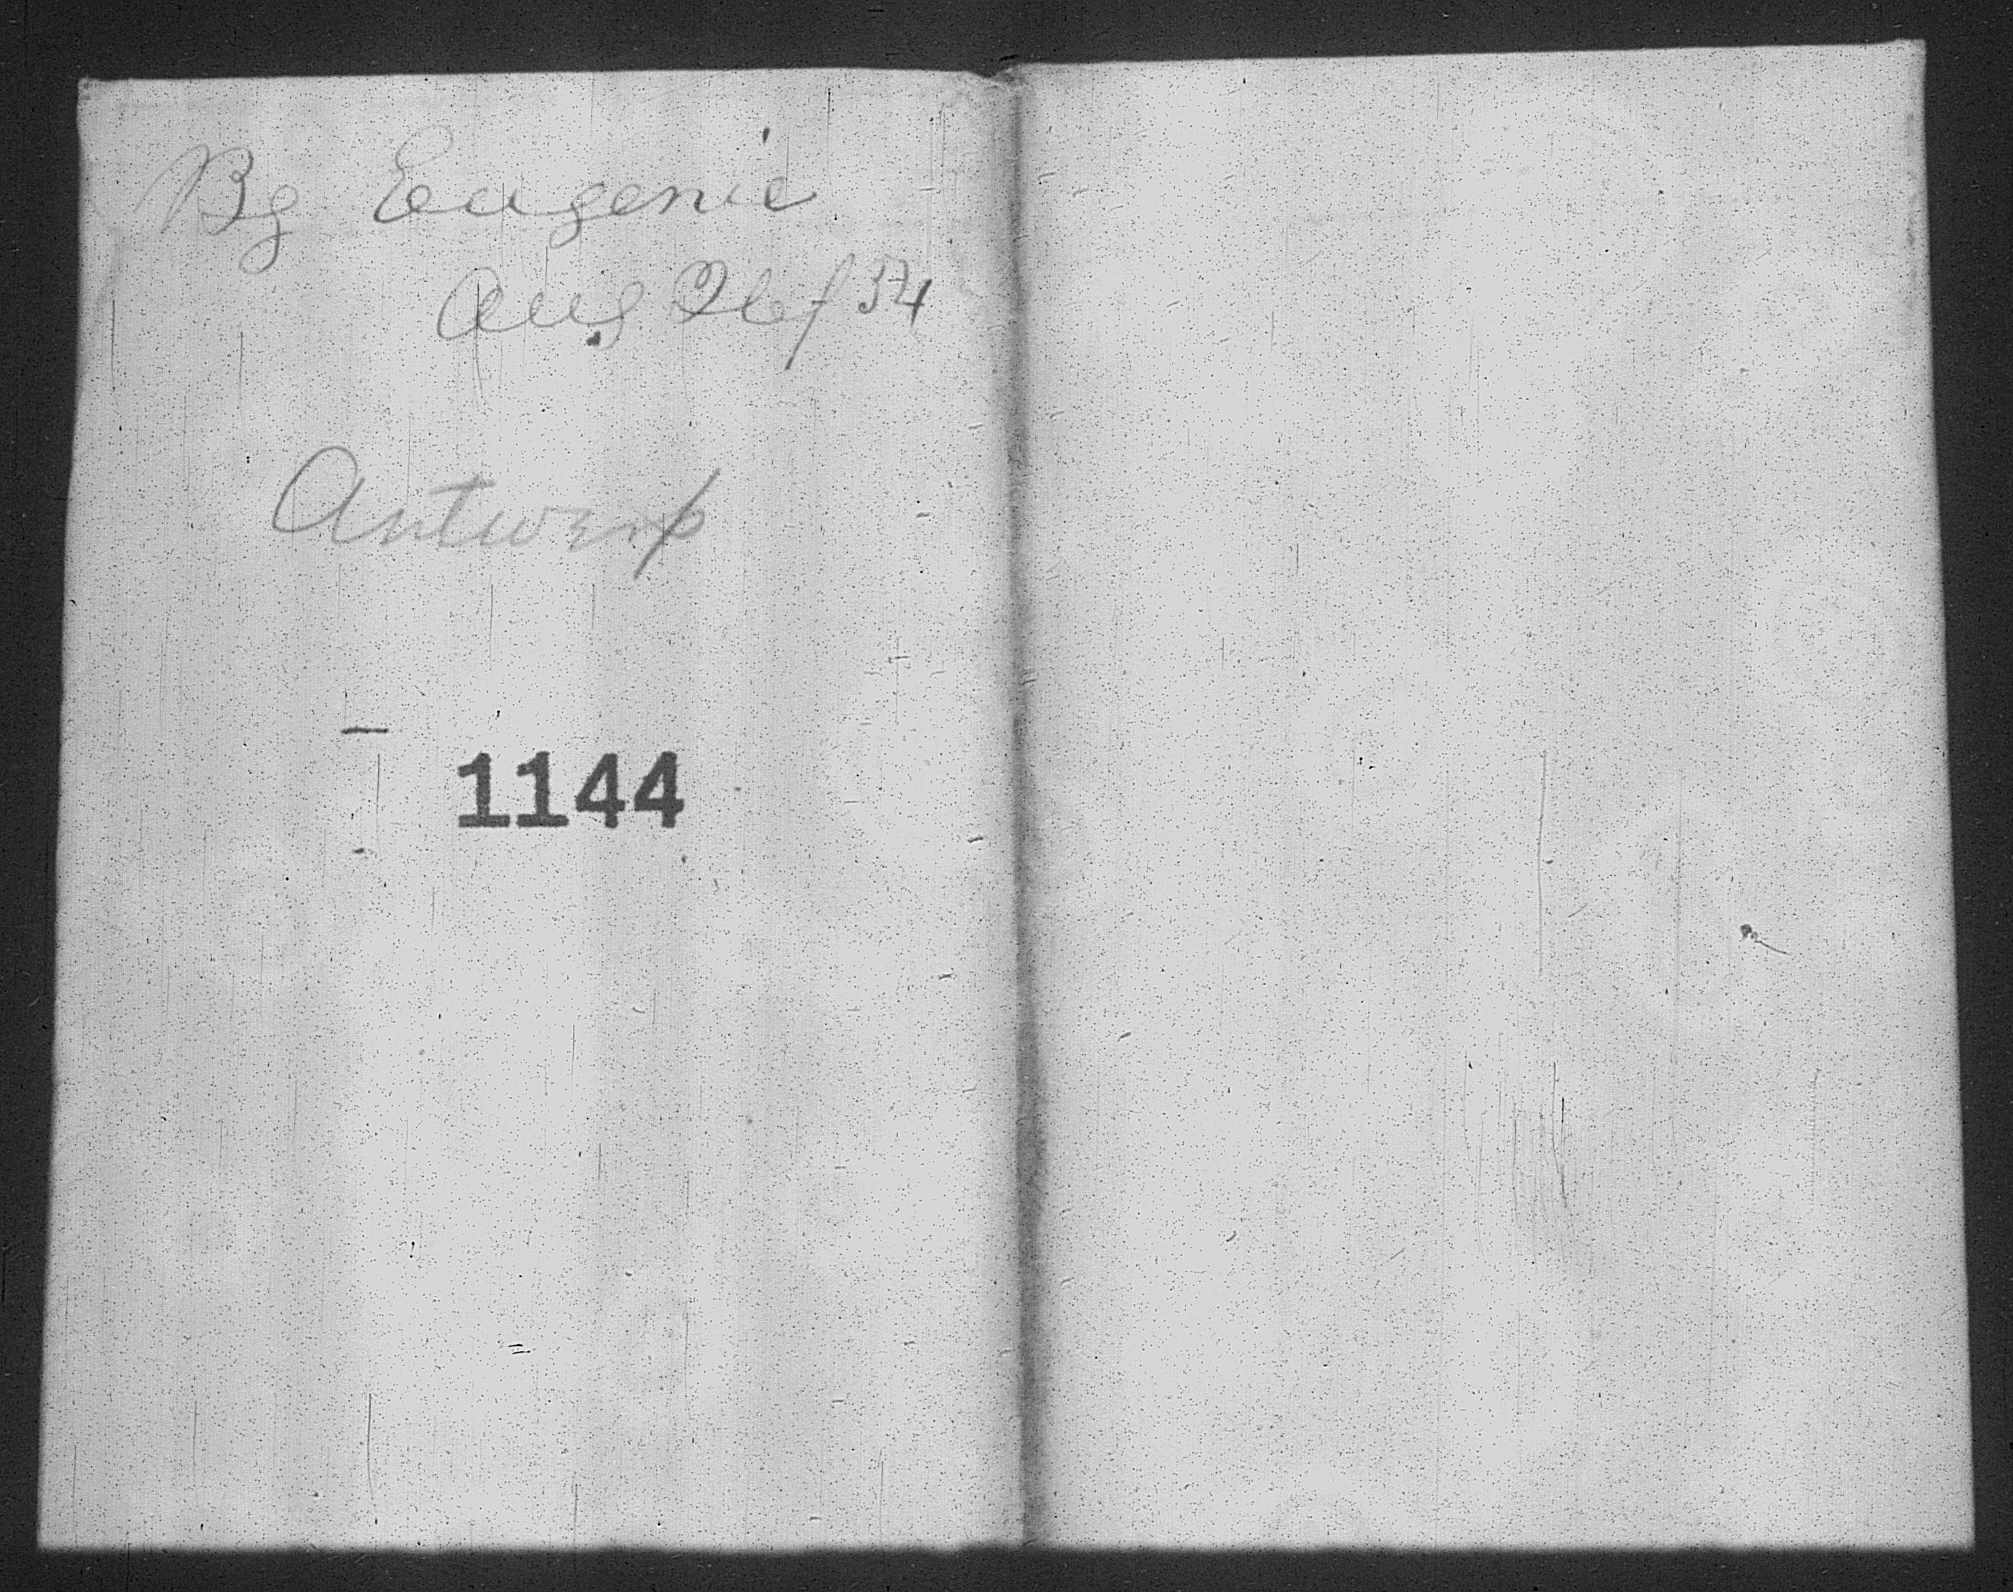 Bg Eugenie
Aug 26/54
Antwerp
1144